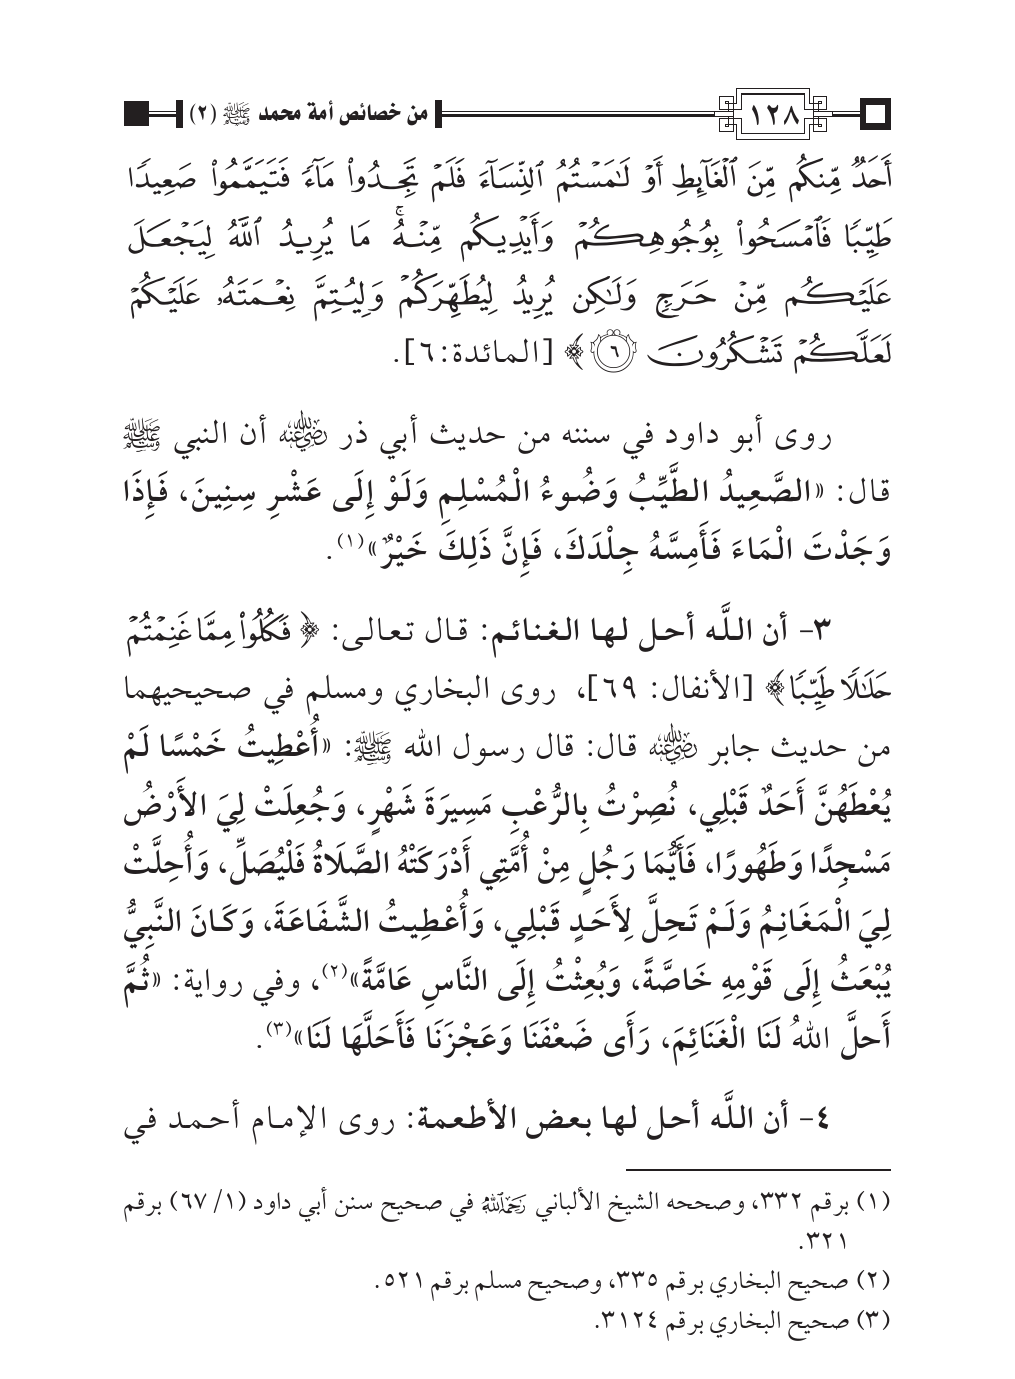 ١٢٨ من خصائص أمة محمد ﷺ (٢)
أَحَدٌ مِّنكُم مِّنَ ٱلْغَآئِطِ أَوْ لَـٰمَسْتُمُ ٱلنِّسَآءَ فَلَمْ تَجِدُوا۟ مَآءً فَتَيَمَّمُوا۟ صَعِيدًا
طَيِّبًا فَٱمْسَحُوا۟ بِوُجُوهِكُمْ وَأَيْدِيكُم مِّنْهُ ۚ مَا يُرِيدُ ٱللَّهُ لِيَجْعَلَ
عَلَيْكُم مِّنْ حَرَجٍ وَلَـٰكِن يُرِيدُ لِيُطَهِّرَكُمْ وَلِيُتِمَّ نِعْمَتَهُۥ عَلَيْكُمْ
لَعَلَّكُمْ تَشْكُرُونَ ٦ ﴾ [المائدة: ٦].
روى أبو داود في سننه من حديث أبي ذر رضي الله عنه أن النبي ﷺ
قال: «الصَّعِيدُ الطَّيِّبُ وَضُوءُ الْمُسْلِمِ وَلَوْ إِلَى عَشْرِ سِنِينَ، فَإِذَا
وَجَدْتَ الْمَاءَ فَأَمِسَّهُ جِلْدَكَ، فَإِنَّ ذَلِكَ خَيْرٌ»(١).
٣- أن اللَّه أحل لها الغنائم: قال تعالى: ﴿ فَكُلُوا۟ مِمَّا غَنِمْتُمْ
حَلَـٰلًا طَيِّبًا﴾ [الأنفال: ٦٩]، روى البخاري ومسلم في صحيحيهما
من حديث جابر رضي الله عنه قال: قال رسول الله ﷺ: «أُعْطِيتُ خَمْسًا لَمْ
يُعْطَهُنَّ أَحَدٌ قَبْلِي، نُصِرْتُ بِالرُّعْبِ مَسِيرَةَ شَهْرٍ، وَجُعِلَتْ لِيَ الأَرْضُ
مَسْجِدًا وَطَهُورًا، فَأَيُّمَا رَجُلٍ مِنْ أُمَّتِي أَدْرَكَتْهُ الصَّلَاةُ فَلْيُصَلِّ، وَأُحِلَّتْ
لِيَ الْمَغَانِمُ وَلَمْ تَحِلَّ لِأَحَدٍ قَبْلِي، وَأُعْطِيتُ الشَّفَاعَةَ، وَكَانَ النَّبِيُّ
يُبْعَثُ إِلَى قَوْمِهِ خَاصَّةً، وَبُعِثْتُ إِلَى النَّاسِ عَامَّةً»(٢)، وفي رواية: «ثُمَّ
أَحلَّ اللهُ لَنَا الْغَنَائِمَ، رَأَى ضَعْفَنَا وَعَجْزَنَا فَأَحَلَّهَا لَنَا»(٣).
٤- أن اللَّه أحل لها بعض الأطعمة: روى الإمام أحمد في
(١) برقم ٣٣٢، وصححه الشيخ الألباني رحمه الله في صحيح سنن أبي داود (١/ ٦٧) برقم
٣٢١.
(٢) صحيح البخاري برقم ٣٣٥، وصحيح مسلم برقم ٥٢١.
(٣) صحيح البخاري برقم ٣١٢٤.